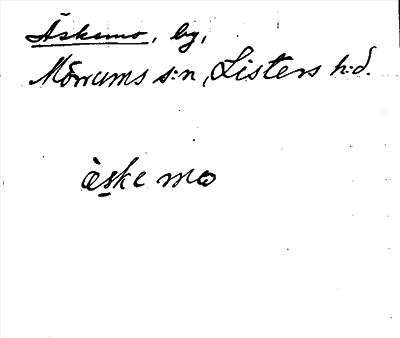 Äskemo, by,
Mörrums s:n, Listers h:d.
èske mo